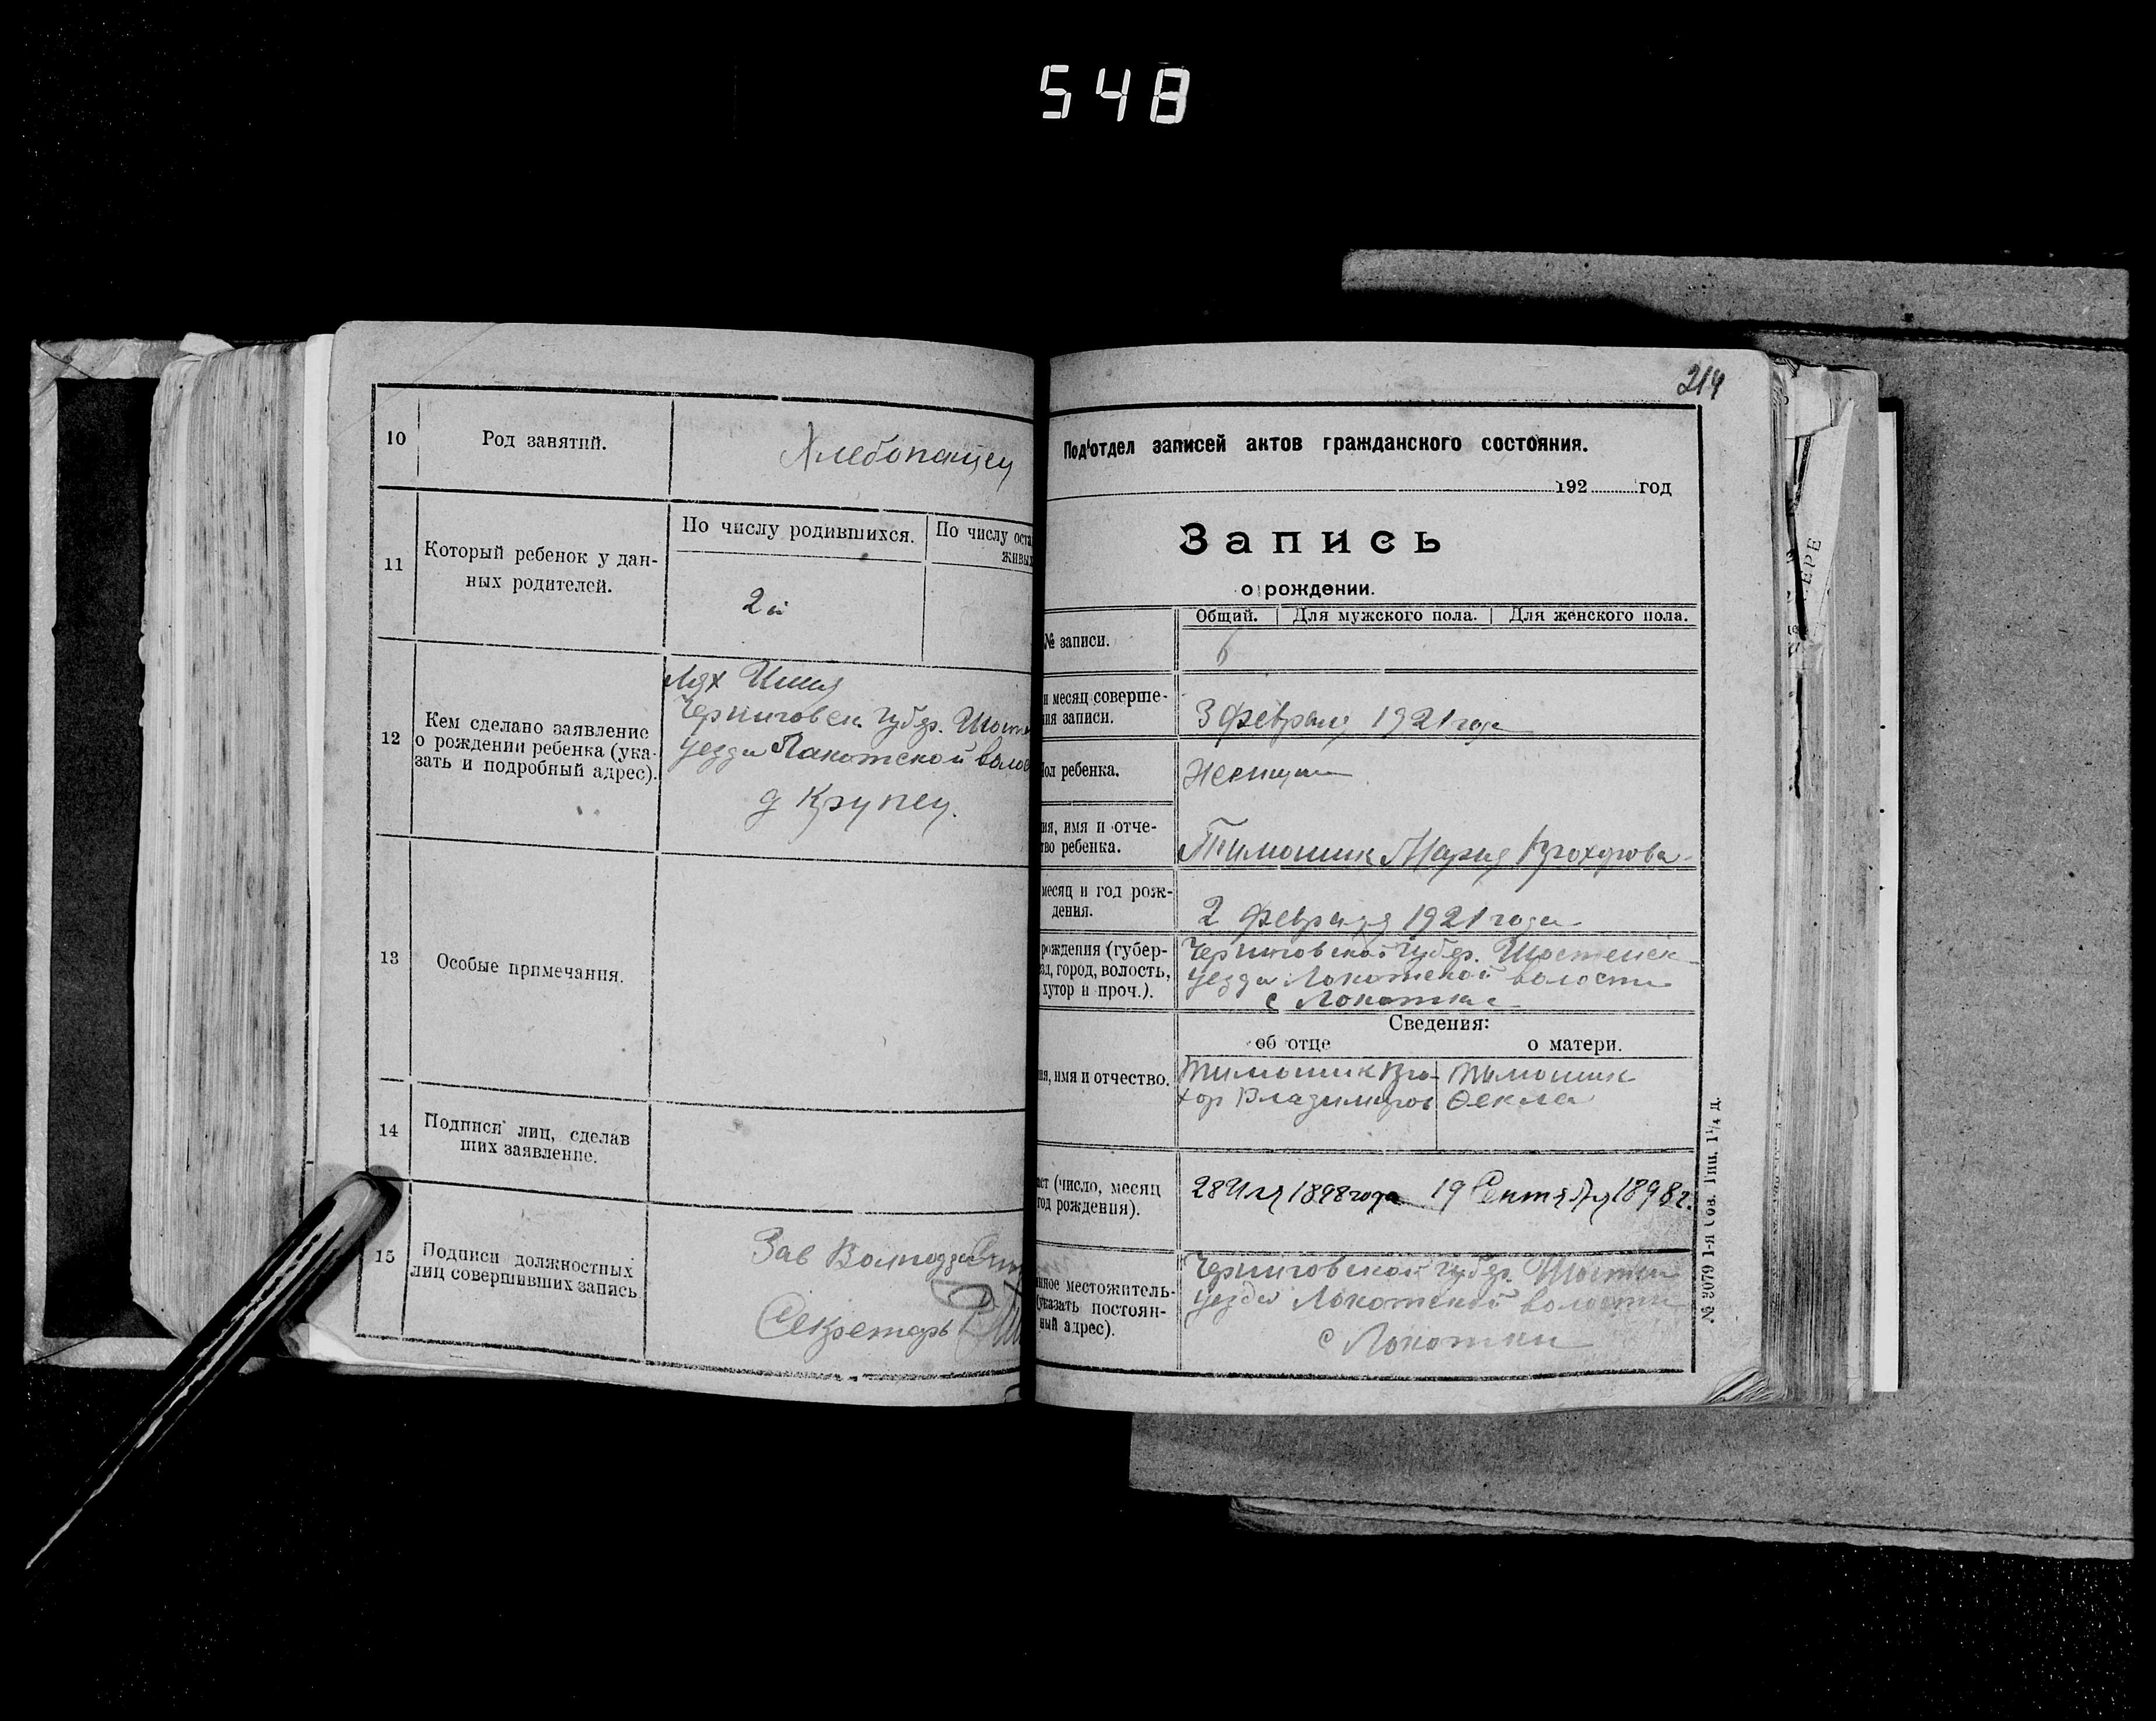 548
10 Род занятий. Хлебопашец
11 Который ребенок у дан-
ных родителей.
По числу родившихся. По числу оста
живых
2й
12 Кем сделано заявление
о рождении ребенка (ука-
зать и подробный адрес).
Лях
Черниговск губер. Шост
уезда Локотской волос
д Крупец.
13 Особые примечания.
14 Подписи лиц, сделав
ших заявление.
15 Подписи должностных
лиц совершивших запись
Зав
Секретарь
214
Подотдел записей актов гражданского состояния.
192 год
Запись
о рождении.
Общий. Для мужского пола. Для женского пола.
№ записи. 6
и месяц соверше-
ия записи.
3 февраля 1921 года
ол ребенка. Женщин
ия, имя и отче-
тво ребенка.
Тимошик Мария Прохорова
месяц и год рож-
дения.
2 февраля 1921 года
рождения (губер-
зд, город, волость,
хутор и проч.).
Черниговской губер. Шостенск
уезда Локотской волости
с Локотки
Сведения:
об отце о матери.
ия, имя и отчество.
Тимошик Про-
хор Владимиров
Тимошик
Фекла
аст (число, месяц
год рождения).
1898 года 19 Сентября 1898 г.
нное местожитель-
(указать постоян-
ный адрес).
Черниговской губер. Шостен
уезда Локотской волости
с Локотки
№ 3079 1-я Сов. Тип. 1¹/₄ д.